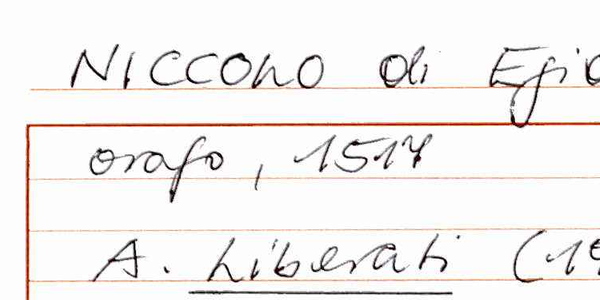 NICCOLO di Egi
orafo, 1517
A. Liberati (19